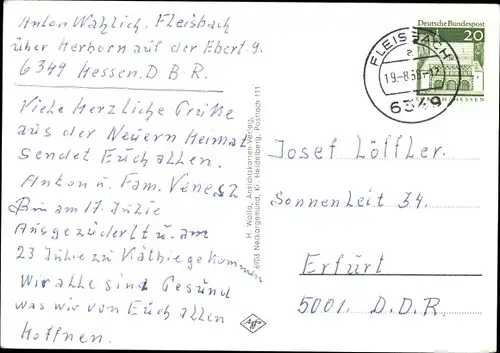 Anton Wahlich. Fleisbach
über Herborn auf der Ebert 9.
6349 Hessen. D B R.
Viele Herzliche Grüße
aus der Neuern Heimat
sendet Euch allen.
Anton u. Fam.
Bin am 17. Julie
u. am
23 Julie zu gekommen
Wir alle sind Gesund
was wir von Euch allen
Hoffnen.
H. Wolla, Ansichtskarten-Verlag,
6903 Neckargemünd, Kr. Heidelberg, Postfach 111
Agfa
Deutsche Bundespost
20
HESSEN
FLEISBACH
a
19.-8.
6349
Josef Löffler.
Sonnenleit 34.
Erfurt
5001. D.D.R.